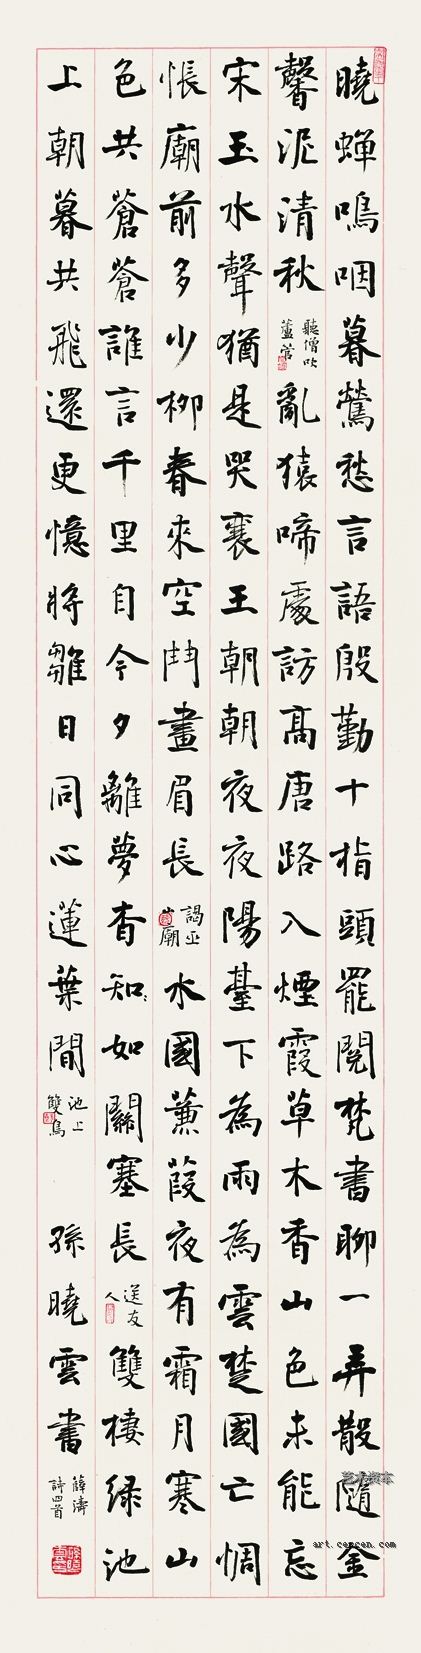 曉蟬鳴咽暮鶯愁言語殷勤十指頭罷閱梵書聊一弄散隨金
馨泥清秋
聽僧吹
蘆管
亂猿啼處訪高唐路入煙霞草木香山色未能忘
宋玉水聲猶是哭襄王朝朝夜夜陽臺下為雨為雲楚國亡惆
悵廟前多少柳春來空鬥畫眉長
謁巫
山廟
水國蒹葭夜有霜月寒山
色共蒼蒼誰言千里自今夕離夢杳知如關塞長
送友
人
雙棲綠池
上朝暮共飛還更憶將雛日同心蓮葉間
池上
雙鳥
孫曉雲書
薛濤
詩四首